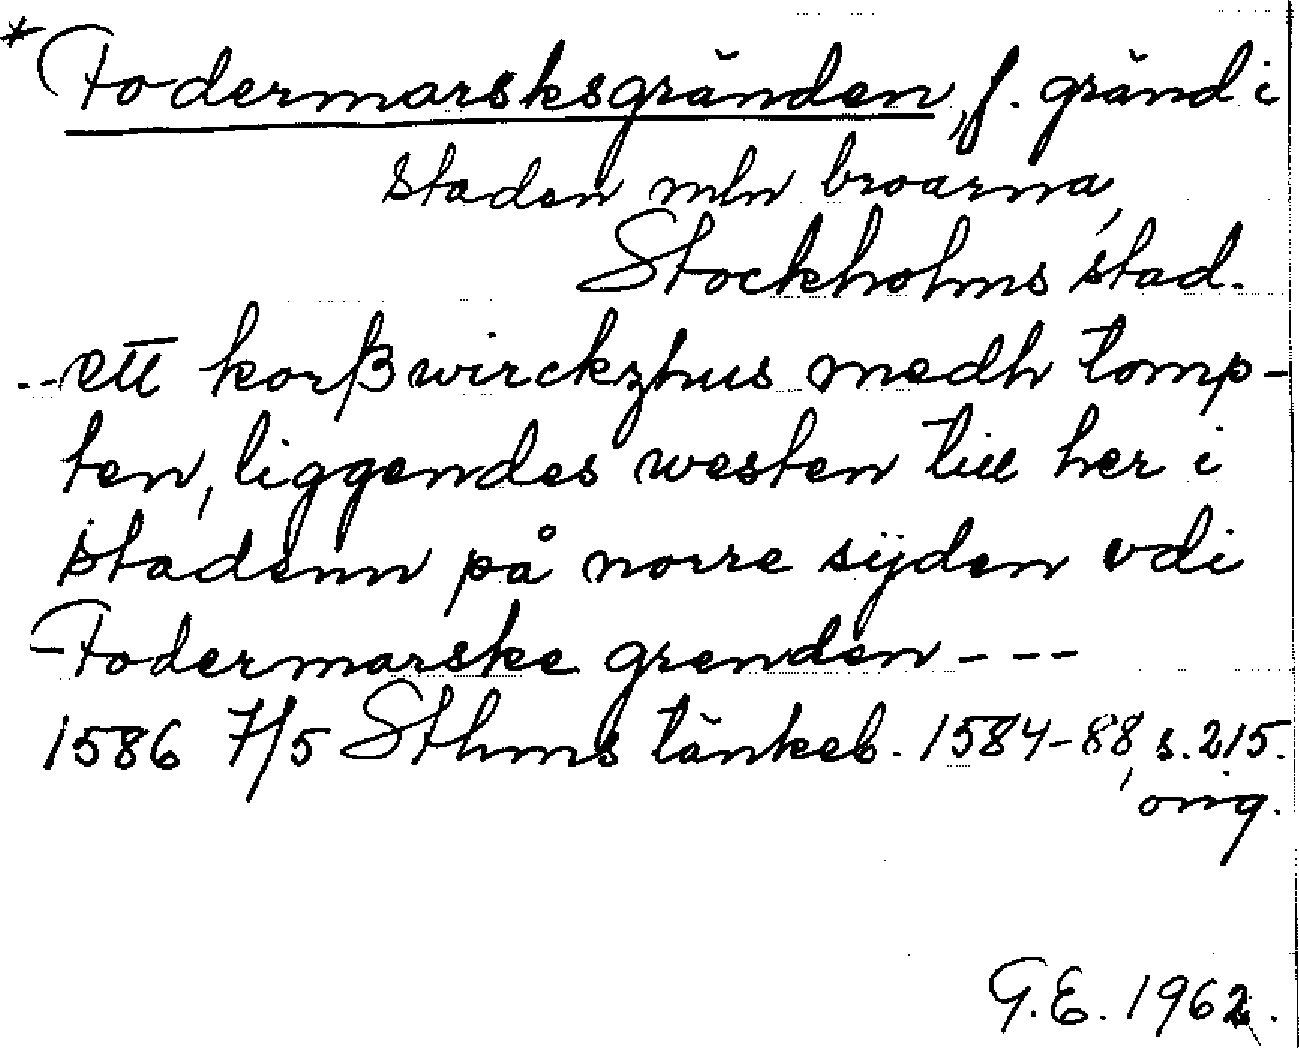 * Fodermarsksgränden, f. gränd i
staden mln broarna,
Stockholms stad.
--ett korßwirckzhus medh tomp-
ten, liggendes westen till her i
stadenn på norre sijden vdi
Fodermarske grenden---
1586 7/5 Sthms tänkeb. 1584-88, s. 215.
orig.
G.E. 1962.